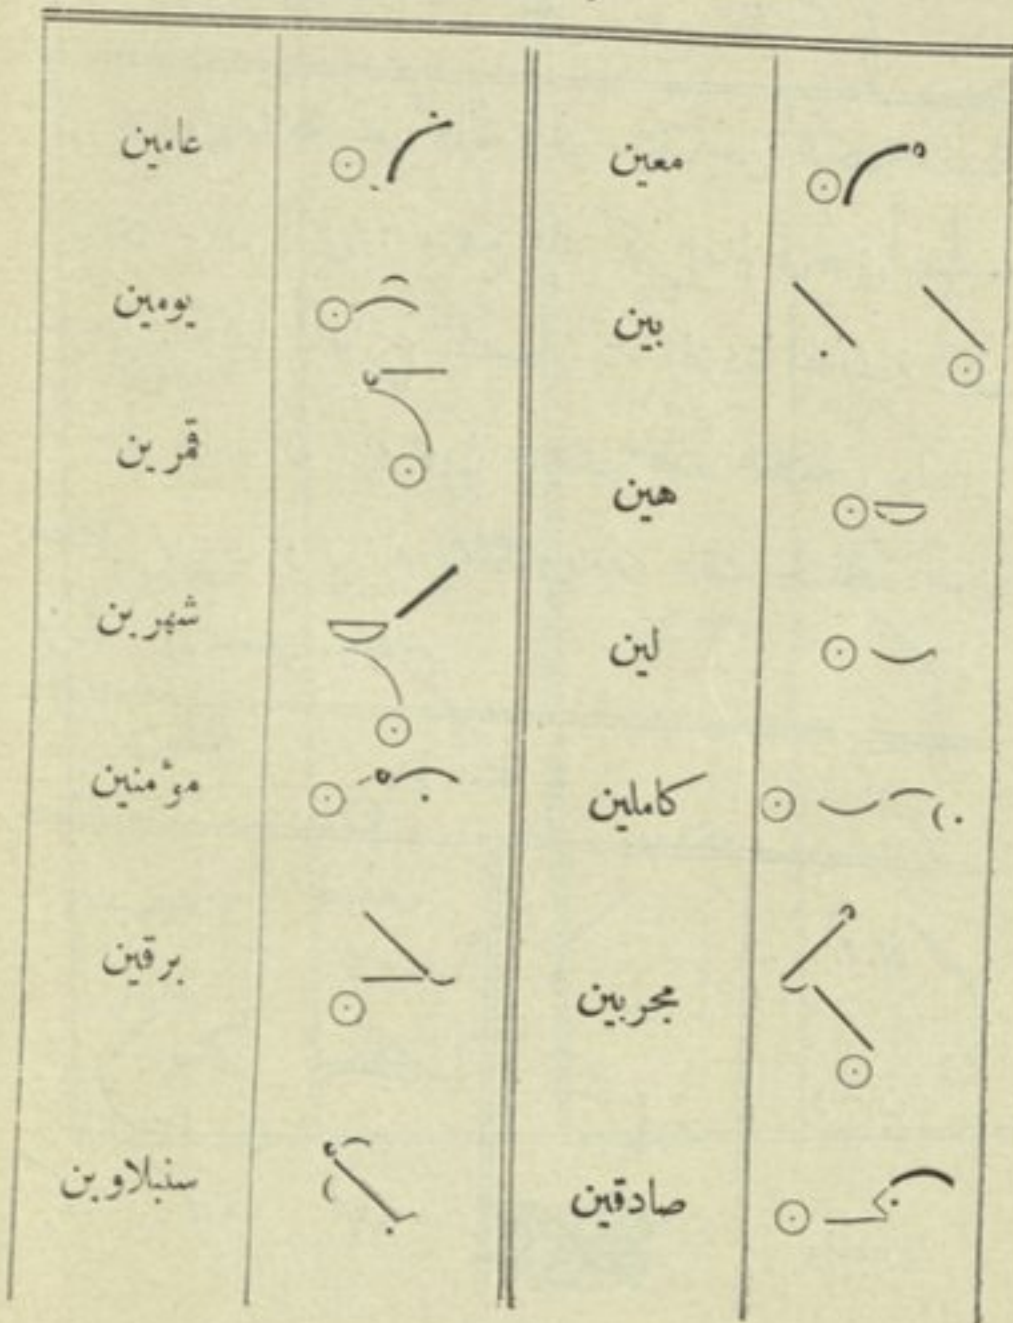 معين
بين
هين
لين
كاملين
مجربين
صادقين
عامين
يومين
قمرين
شهرين
مؤمنين
برقين
سنبلاوين